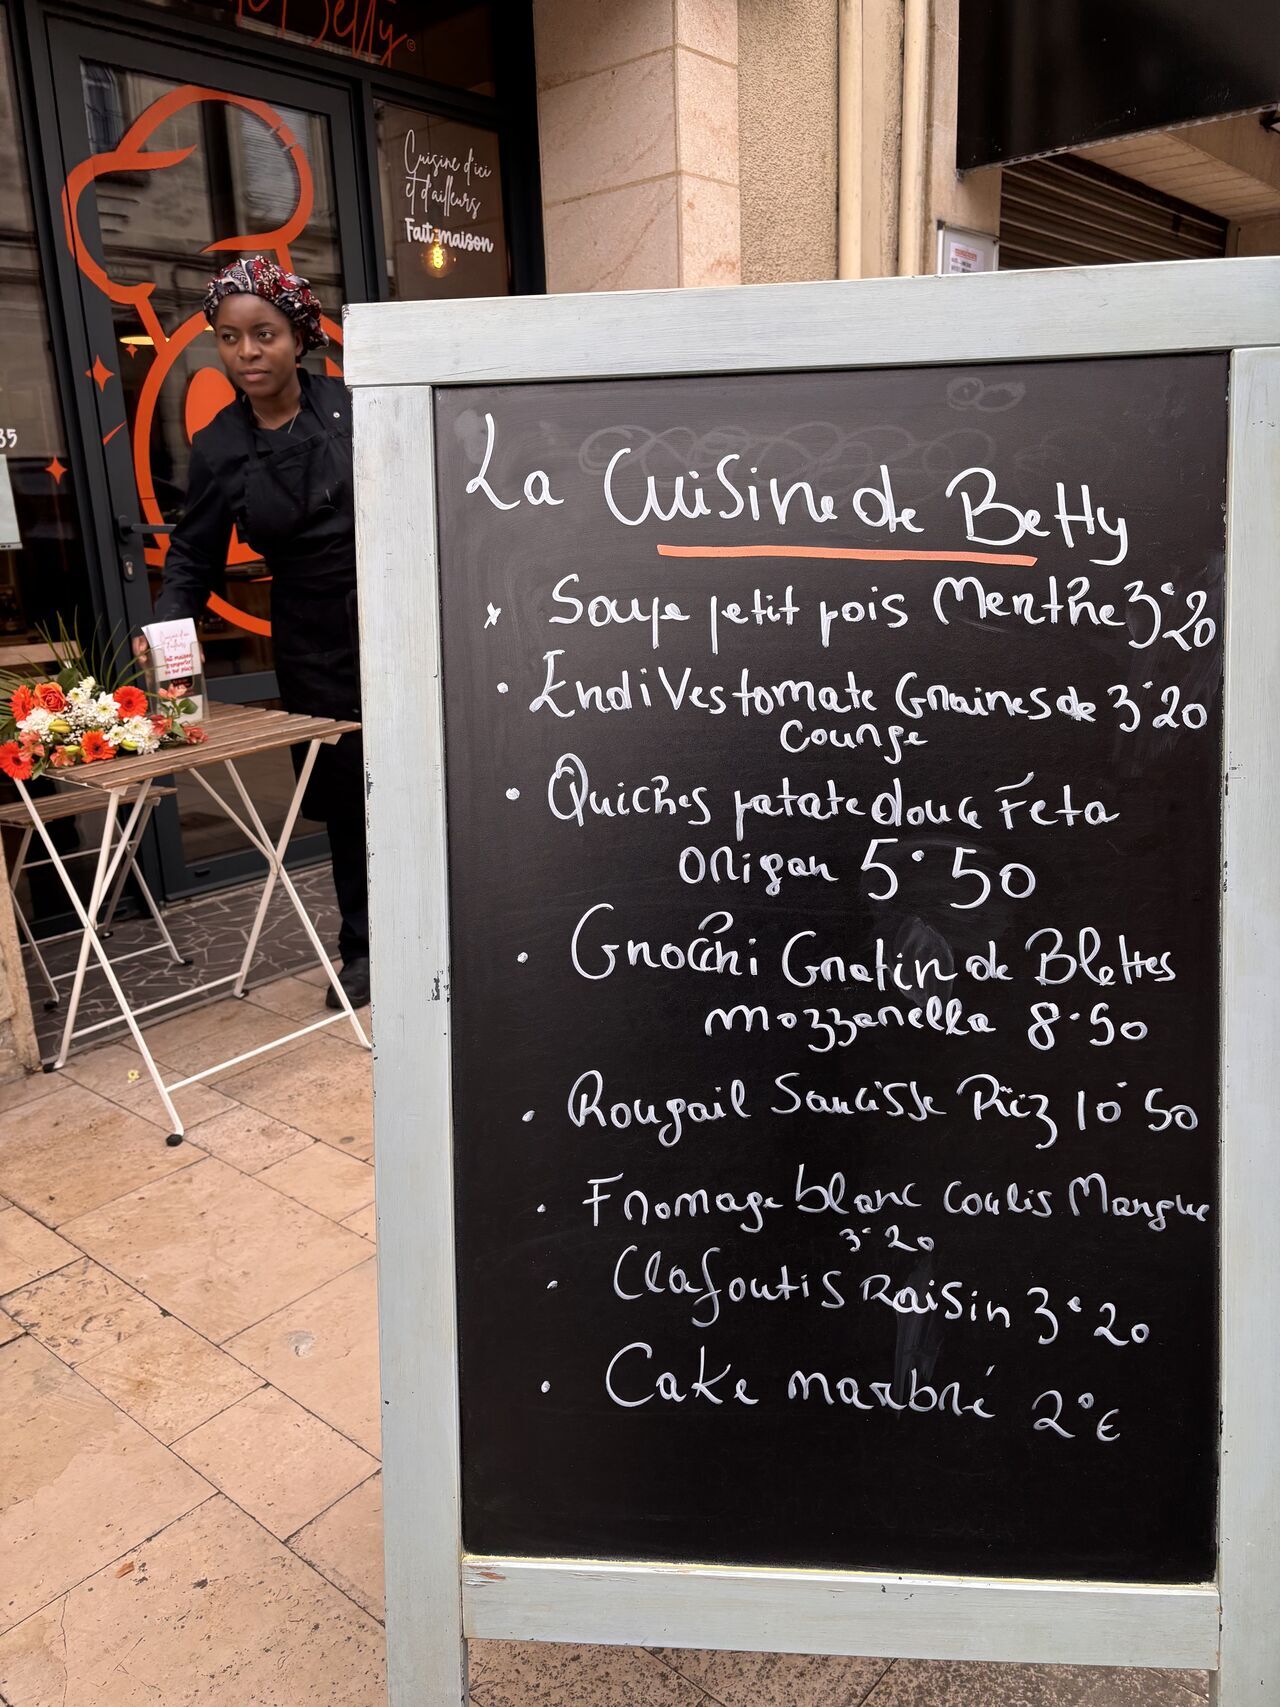 Betty
Cuisine d'ici
et d'ailleurs
Fait maison
35
La Cuisine de Betty
x Soupe petit pois Menthe 3°20
• Endives tomate Graines de 3°20
Courge
• Quiches patate douce Feta
Origan 5°50
• Gnocchi Gratin de Blettes
mozzarella 8.50
• Rougail Saucisse Riz 10°50
• Fromage blanc Coulis Mangue
3°20
• Clafoutis Raisin 3°20
• Cake marbré 2°€